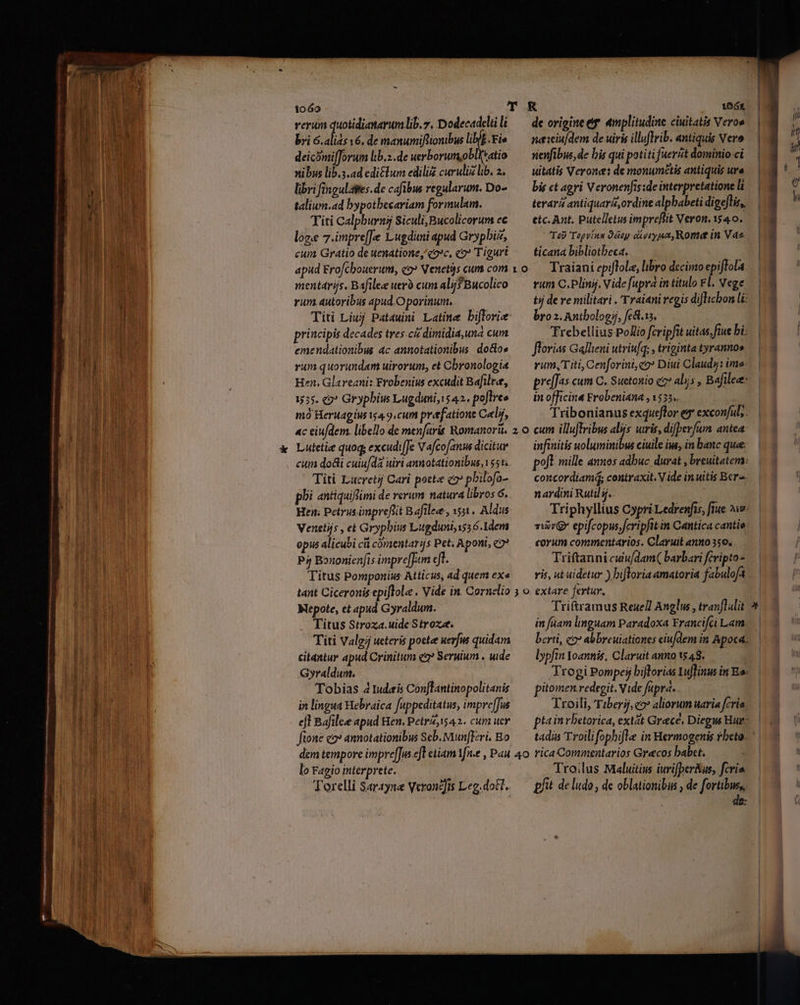 1060 T
rerum quotidianarum lib.7. Dodecadelti li
bri 6.aliàs 16. de manumißionibus lib. Fi
deicōmissorum lib.2.de uerborum
nibus lib.3.ad edictum ediliū curuliū lib. 2.
libri singulares.de casibus regularum. Do-
talium.ad hypothecariam formulam.
Titi Calphurnij Siculi,Bucolicorum ec
logæ 7.impressæ Lugduni apud Gryphiū,
cum Gratio de uenatione, &c, & Tiguri
apud Froschouerum, & Venetijs cum com
mentarijs. Basileæ uerò cum alijs Bucolico
rum autoribus apud Oporinum.
Titi Liuij Patauini Latinæ historiæ
principis decades tres cū dimidia,unà cum
emendationibus ac annotationibus docto-
rum quorundam uirorum, et Chronologia
Hen. Glareani: Frobenius excudit Basileæ,
1535. & Gryphius Lugduni,1542. postre-
mò Heruagius 1549.cum præfatione Cælij,
ac eiusdem libello de mensuris Romanorū.
* Lutetiæ quoq; excudisse Vascosanus dicitur
cum docti cuiusdā uiri annotationibus,1551.
Titi Lucretij Cari poetæ & philoso-
phi antiquißimi de rerum natura libros 6.
Hen. Petrus impreßit Basileæ, 1531. Aldus
Venetijs, et Gryphius Lugduni,1536.Idem
opus alicubi cū cōmentarijs Pet. Aponi, &
Pij Bononiensis impressum est.
Titus Pomponius Atticus, ad quem exe
tant Ciceronis epistolæ. Vide in Cornelio
Nepote, et apud Gyraldum.
Titus Stroza.uide Strozæ.
Titi Valgij ueteris poetæ uersus quidam
citantur apud Crinitum & Seruium. uide
Gyraldum.
Tobias à Iudæis Constantinopolitanis
in lingua Hebraica suppeditatus, impressus
est Basileæ apud Hen. Petrū,1542. cum uer
sione & annotationibus Seb.Munsteri. Eo
dem tempore impressus est etiam Isnæ, Pau
lo Fagio interprete.
Torelli Saraynæ Veronēsis Leg.doct.
10
20
30
40
R 1061
de origine & amplitudine ciuitatis Vero-
næ:eiusdem de uiris illustrib. antiquis Vero
nensibus,de his qui potiti fuerūt dominio ci
uitatis Veronæ: de monumētis antiquis ur-
bis et agri Veronensis:de interpretatione li
terarū antiquarū,ordine alphabeti digestis,
etc. Ant. Putelletus impreßit Veron. 1540.
Romæ in Va-
ticana bibliotheca.
Traiani epistolæ, libro decimo epistola
rum C.Plinij. Vide suprà in titulo Fl. Vege
tij de re militari. Traiani regis distichon li-
bro 2. Anthologij, sect.13.
Trebellius Pollio scripsit uitas,siue hi-
storias Gallieni utriusq;, triginta tyranno-
rum,Titi, Censorini,& Diui Claudij: im-
pressas cum C. Suetonio & alijs, Basileæ
in officina Frobeniana, 1533.
Tribonianus exquestor & exconsul,
cum illustribus alijs uiris, dispersum antea
infinitis uoluminibus ciuile ius, in hanc quæ
post mille annos adhuc durat, breuitatem
concordiamq; contraxit. Vide in uitis Ber-
nardini Rutilij.
Triphyllius Cypri Ledrensis, siue
episcopus,scripsit in Cantica cantic
corum commentarios. Claruit anno 350.
Triftanni cuiusdam( barbari scripto-
ris, ut uidetur ) historia amatoria fabulosa
extare fertur.
Tristramus Reuell Anglus, transtulit *
in suam linguam Paradoxa Francisci Lam
berti, & abbreuiationes eiusdem in Apoca
lypsin Ioannis. Claruit anno 1548.
Trogi Pompeij historias Iustinus in Es-
pitomen redegit. Vide suprà.
Troili, Tiberij, & aliorum uaria scri-
pta in rhetorica, extāt Græcè. Diegus Hur-
tadus Troili sophistæ in Hermogenis rheto-
rica Commentarios Græcos habet.
Troilus Maluitius iurisperitus, scri-
psit de ludo, de oblationibus, de fortibus,
de